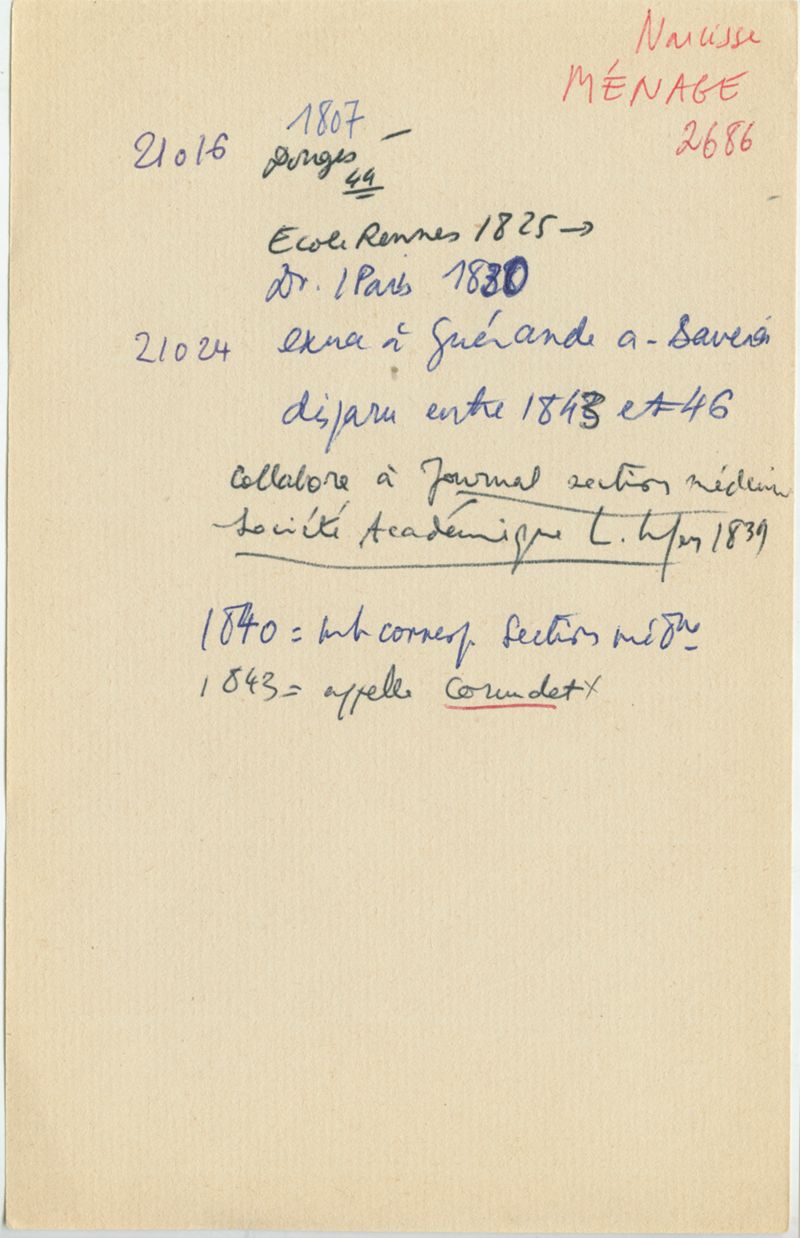 Narcisse
MÉNAGE
2686
1807 –
21016 Donges
44
Ecole Rennes 1825 →
Dr. Paris 1830
21024 exerça à Guérande a - Savenay
disparu entre 1843 et 46
Collabore à Journal section médecine
Société Académique L. Infer 1839
1840 = mb corresp. Section médne
1843 = appelle Corundet x